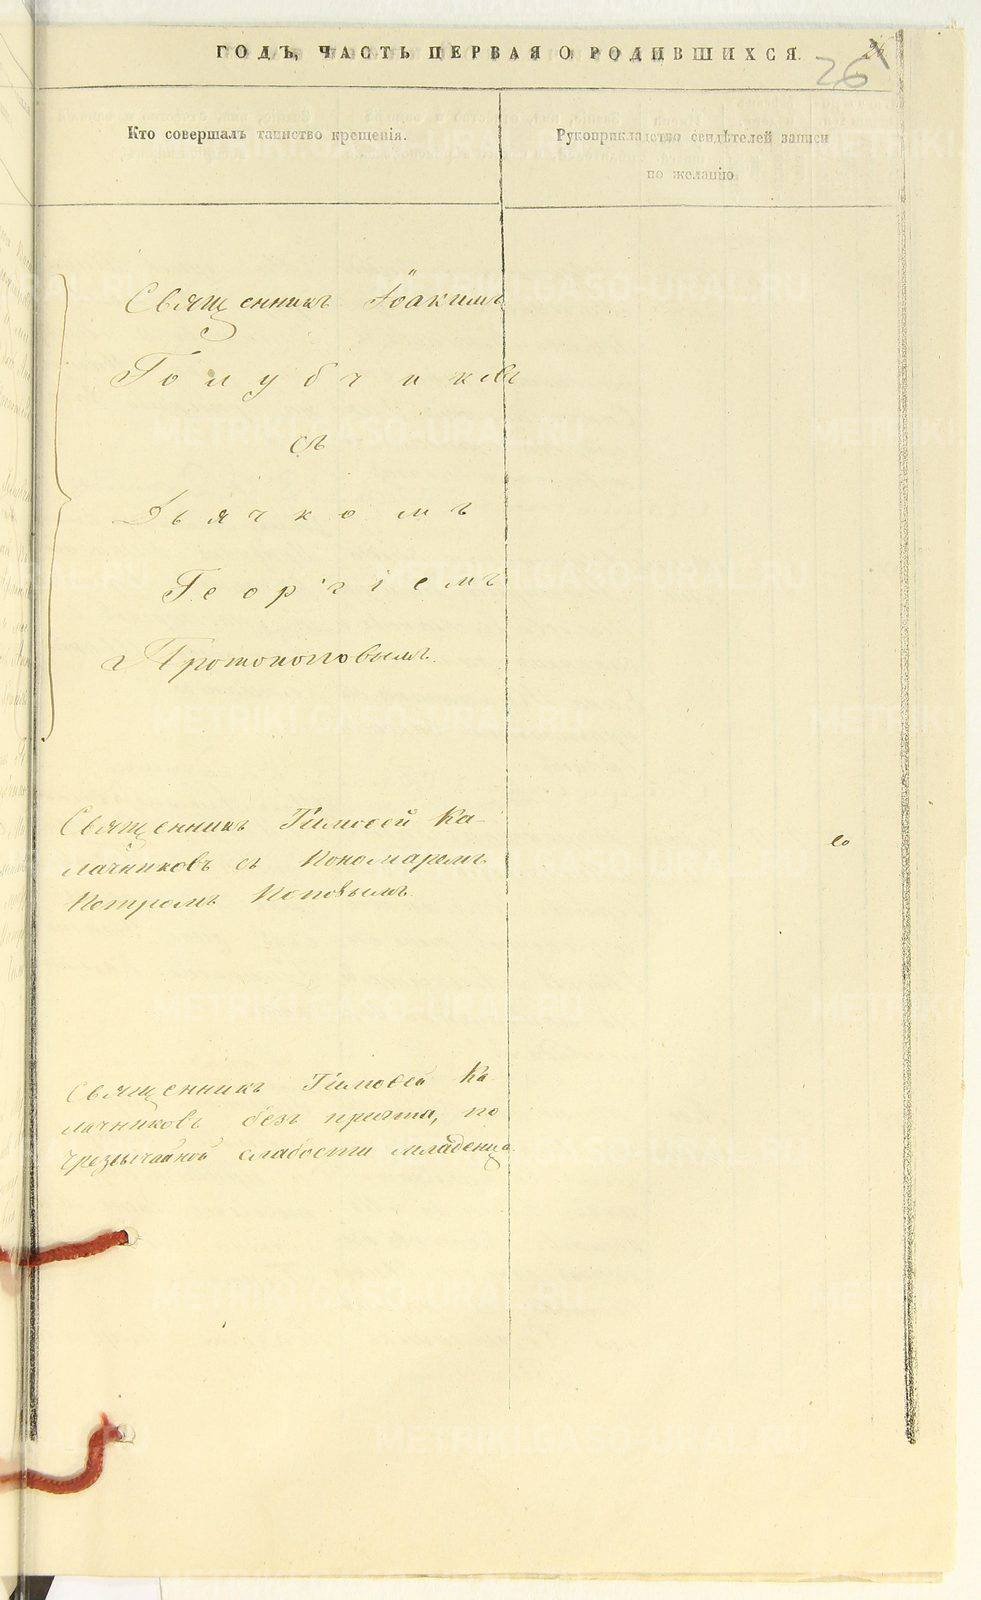 ГОДЪ, ЧАСТЬ ПЕРВАЯ О РОДИВШИХСЯ.
26
Кто совершалъ таинство крещенія.
Рукоприкладство свидѣтелей записи
по желанію
Священникъ Іоакимъ
Голубчиковъ
съ
Дьячкомъ
Георгіемъ
Протопоповымъ.
Священникъ Тимоѳей Ка-
лачниковъ съ Пономаремъ
Петромъ Поповымъ
Священникъ Тимоѳей Ка
лачниковъ безъ причта, по
чрезвычайной слабости младенца
METRIKI.GASO-URAL.RU